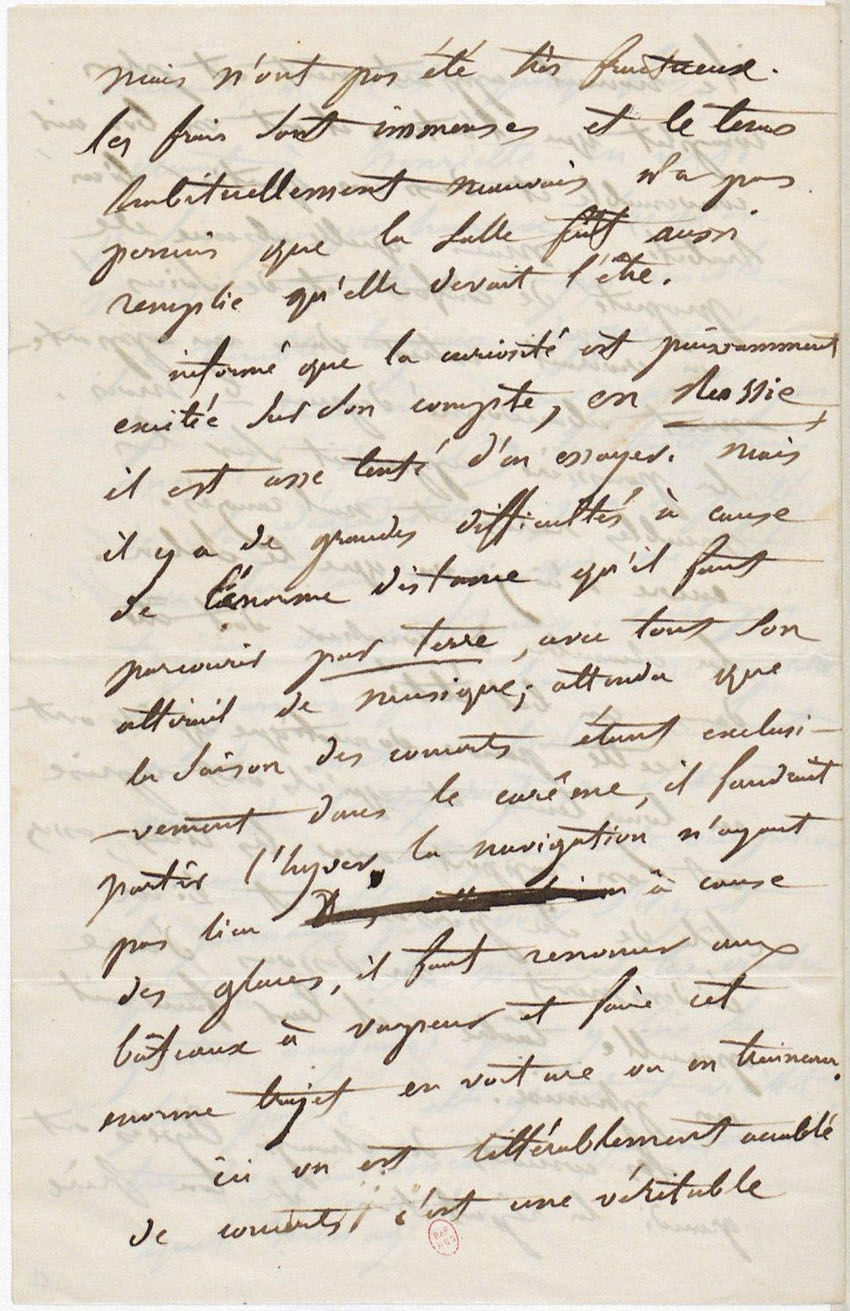 mais n'ont pas été très fructueux.
les frais sont immenses et le tems
habituellement mauvais n'a pas
permis que la salle fût aussi
remplie qu'elle devait l'être.
informé que la curiosité est puissamment
excitée sur son compte, en Russie
il est asse tenté d'en essayer. mais
il y a de grandes difficultés à cause
de l'énorme distance qu'il faut
parcourir par terre, avec tout son
attirail de musique; attendu que
la saison des concerts étant exclusi-
-vement dans le carême, il faudrait
partir l'hyver, la navigation n'ayant
pas lieu à cause
des glaces, il faut renoncer aux
bâteaux à vapeur et faire cet
enorme trajet en voiture ou en traineau.
ici on est littérablement accablé
de concerts, c'est une véritable